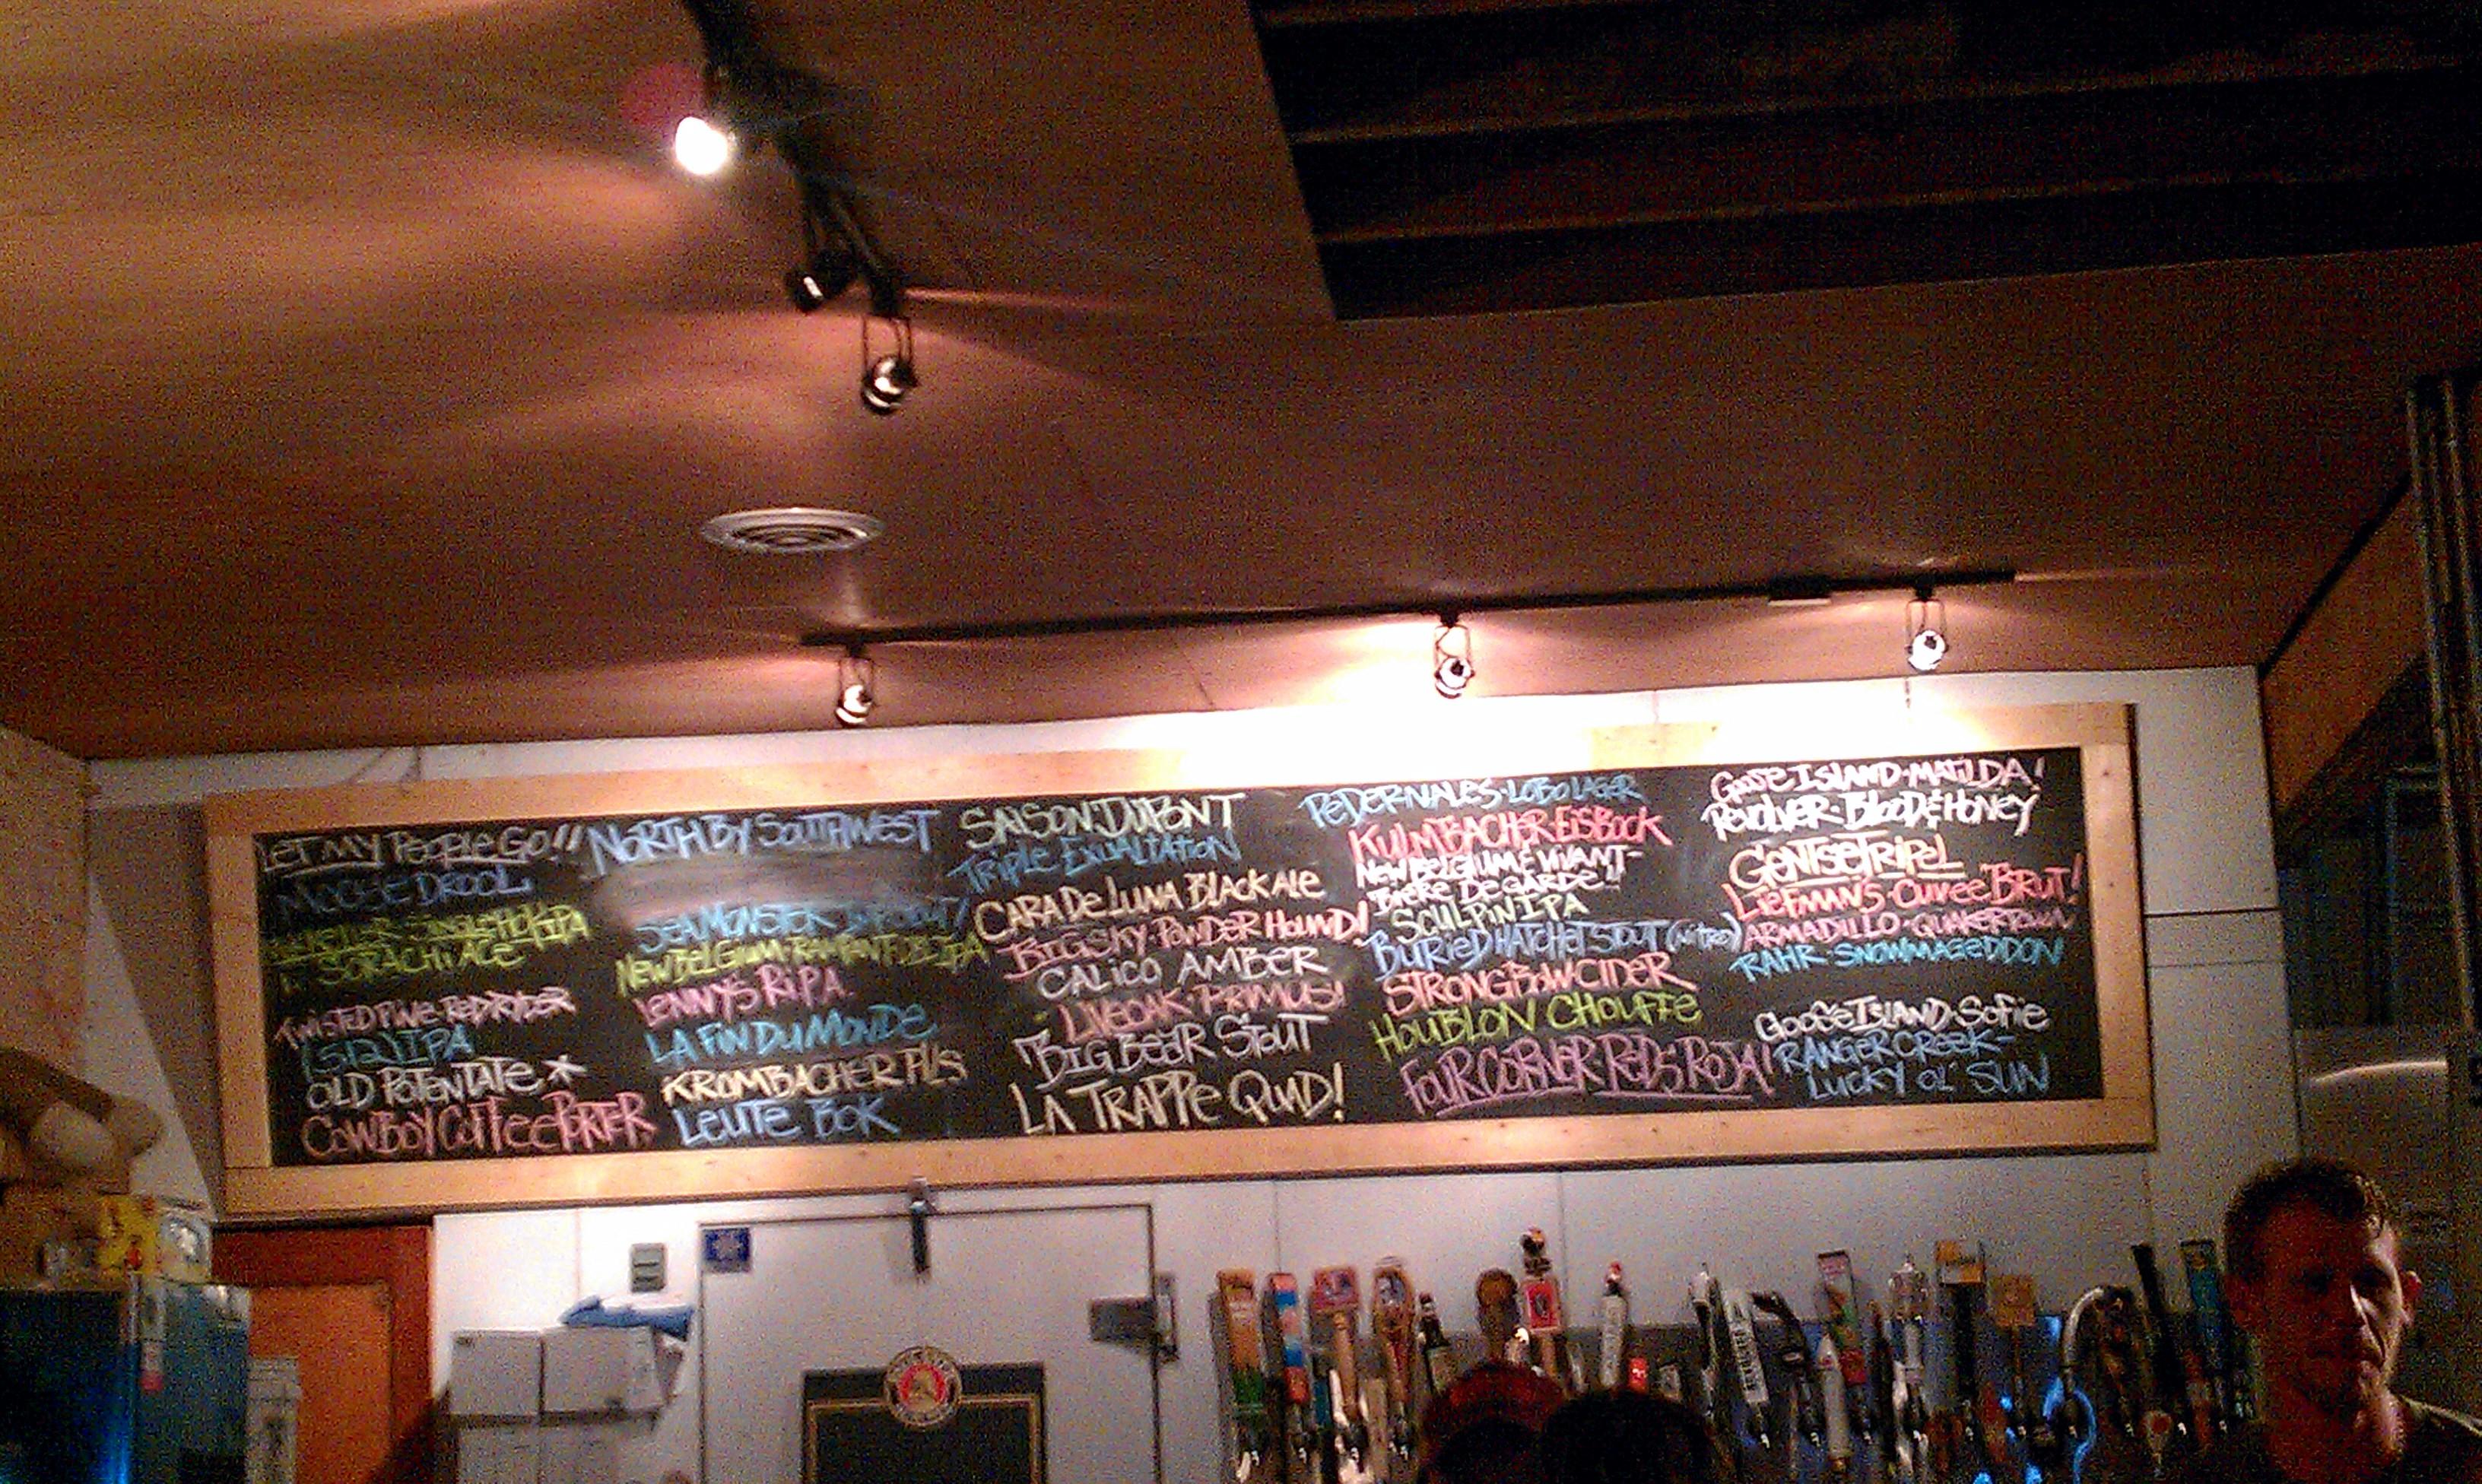 LET MY PEOPLE GO!!
MOOSE DROOL
SINGLE HOP IPA
SORACHI ACE
TWISTED PINE RED RYDER
(512) IPA
OLD POTENTATE *
COWBOY COFFEE PORTER
NORTH BY SOUTHWEST
SEA MONSTER
NEW BELGIUM·RAMPANT
LENNY'S RIPA
LA FIN DU MONDE
KROMBACHER PILS
LEUTE BOK
SAISON DUPONT
TRIPLE EXULTATION
CARA DE LUNA BLACK ALE
BIG SKY·POWDER HOUND!
CALICO AMBER
LIVE OAK·PRIMUS!
BIG BEAR STOUT
LA TRAPPE QUAD!
PEDERNALES·LOBO LAGER
KULMBACHER·EISBOCK
NEW BELGIUM & VIVANT-
BIERE DE GARDE!!
SCULPIN IPA
BURIED HATCHET STOUT (NITRO)
STRONGBOW CIDER
HOUBLON CHOUFFE
FOUR CORNER REDS ROJA!
GOOSE ISLAND·MATILDA!
REVOLVER·BLOOD & HONEY
GENTSE TRIPEL
LIEFMAN'S·CUVEE BRUT!
ARMADILLO·QUAKERTOWN
RAHR·SNOWMAGEDDON
GOOSE ISLAND·SOFIE
RANGER CREEK-
LUCKY OL' SUN